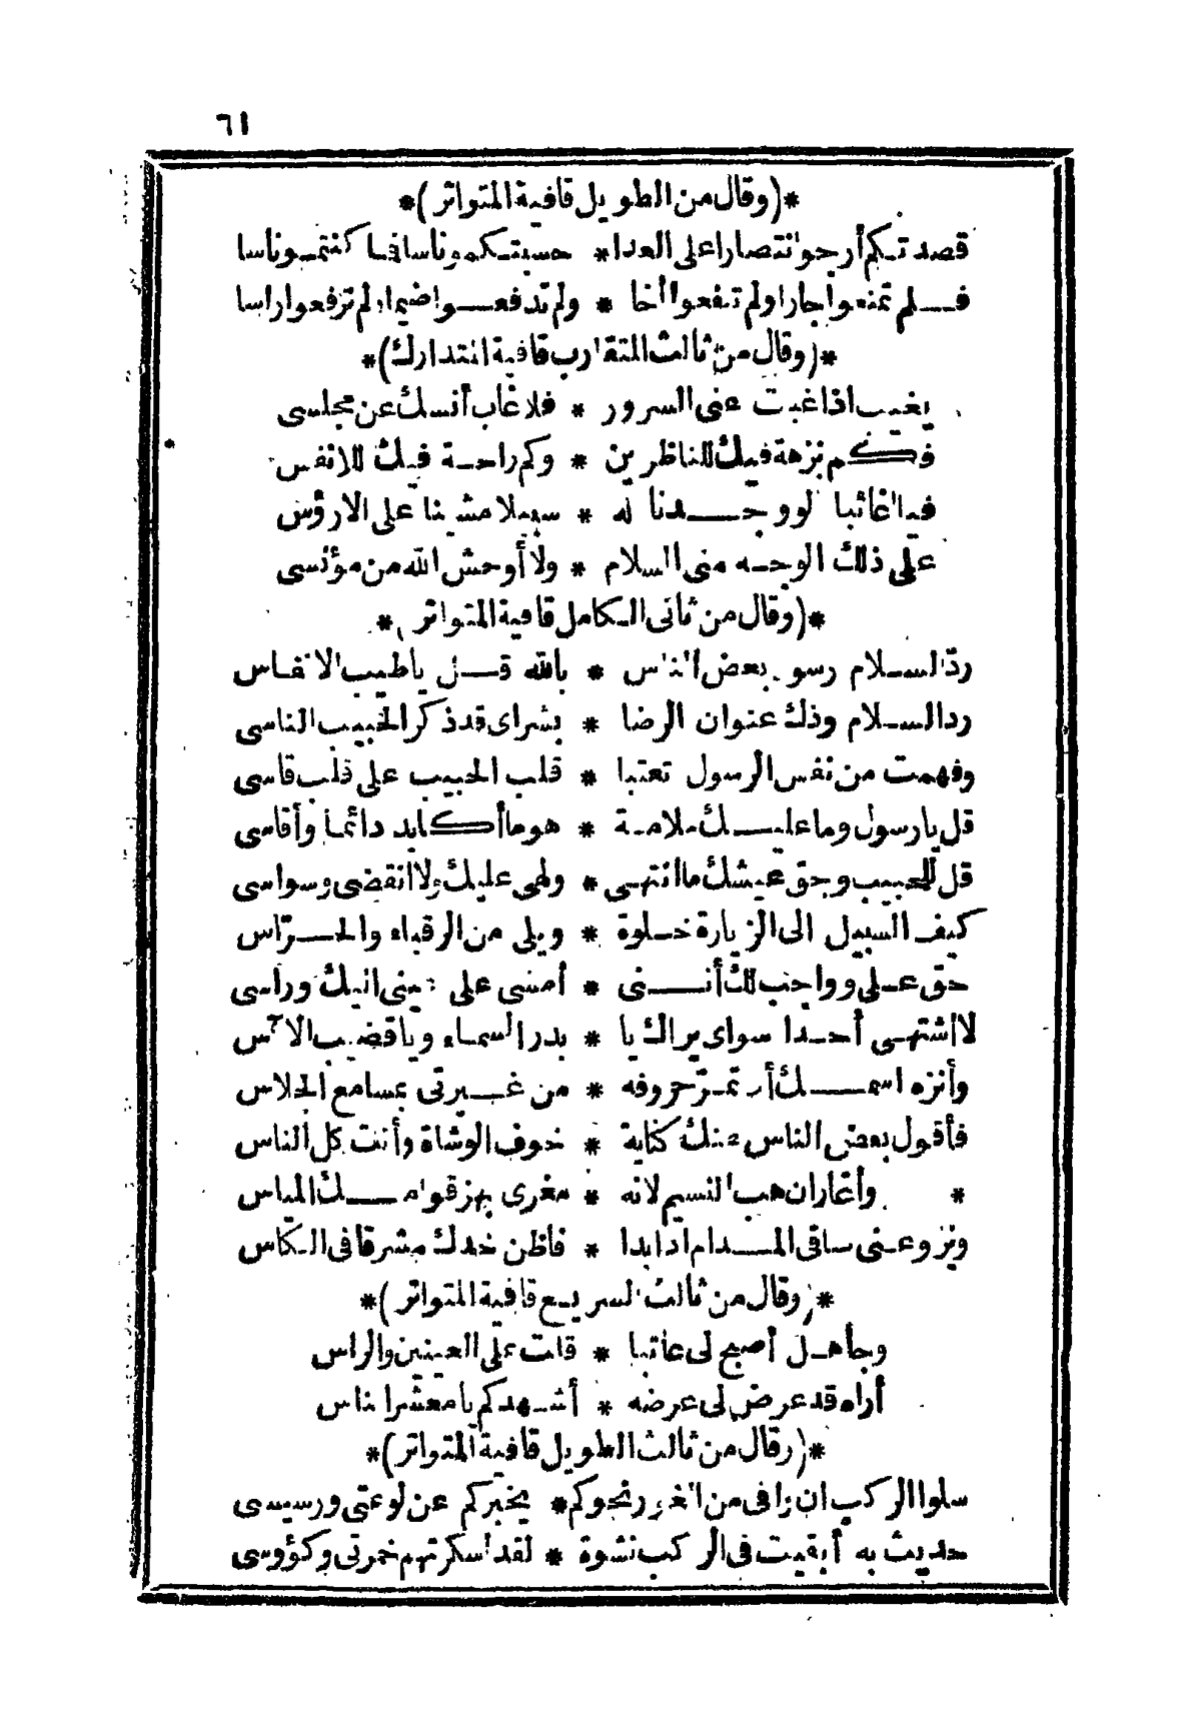 ٦١
*(وقال من الطويل قافية المتواتر)*
قصدتكم أرجو انتصارا على العدا * حسبتكمو ناسا فما كنتمو ناسا
فلم تمنعوا جارا ولم تنفعوا أخا * ولم تدفعوا ضيما ولم ترفعوا راسا
*(وقال من ثالث المتقارب قافية المتدارك)*
يغيب اذا غبت عنى السرور * فلا غاب أنسك عن مجلسى
فكم نزهة فيك للناظرين * وكم راحة فيك للانفس
فيا غائبا لو وجدنا له * سبيلا مشينا على الارؤس
على ذلك الوجه منى السلام * ولا أوحش الله من مؤنسى
*(وقال من ثانى الكامل قافية المتواتر)*
ردّ السلام رسول بعض الناس * بالله قل يا طيب الانفاس
رد السلام وذك عنوان الرضا * بشراى قد ذكر الحبيب الناسى
وفهمت من نفس الرسول تعتبا * قلب الحبيب على قلب قاسى
قل يا رسول وما عليك ملامة * هو ما أكابد دائما وأقاسى
قل للحبيب وحق عيشك ما انتهى * ولهى عليك ولا انقضى وسواسى
كيف السبيل الى الزيارة خلوة * ويلى من الرقباء والحرّاس
حق على وواجب لك أننى * أمشى على عينى اليك وراسى
لا أشتهى أحدا سواى يراك يا * بدر السماء ويا قضيب الآس
وأنزه اسمك أن تمرّ حروفه * من غيرتى بمسامع الجلاس
فأقول بعض الناس عنك كناية * خوف الوشاة وأنت كل الناس
* وأغار ان هب النسيم لانه * مغرى بهز قوامك المياس
ويروعنى ساقى المدام اذا بدا * فاظن خدك مشرقا فى الكاس
*(وقال من ثالث السريع قافية المتواتر)*
وجاهل أصبح لى عاتبا * قلت على العينين والراس
أراه قد عرض لى عرضه * أشهدكم يا معشر الناس
*(وقال من ثالث الطويل قافية المتواتر)*
سلوا الركب ان وافى من الغور نحوكم * يخبركم عن لوعتى ورسيسى
حديث به أبقيت فى الركب نشوة * لقد أسكرتهم خمرتى وكؤوسى